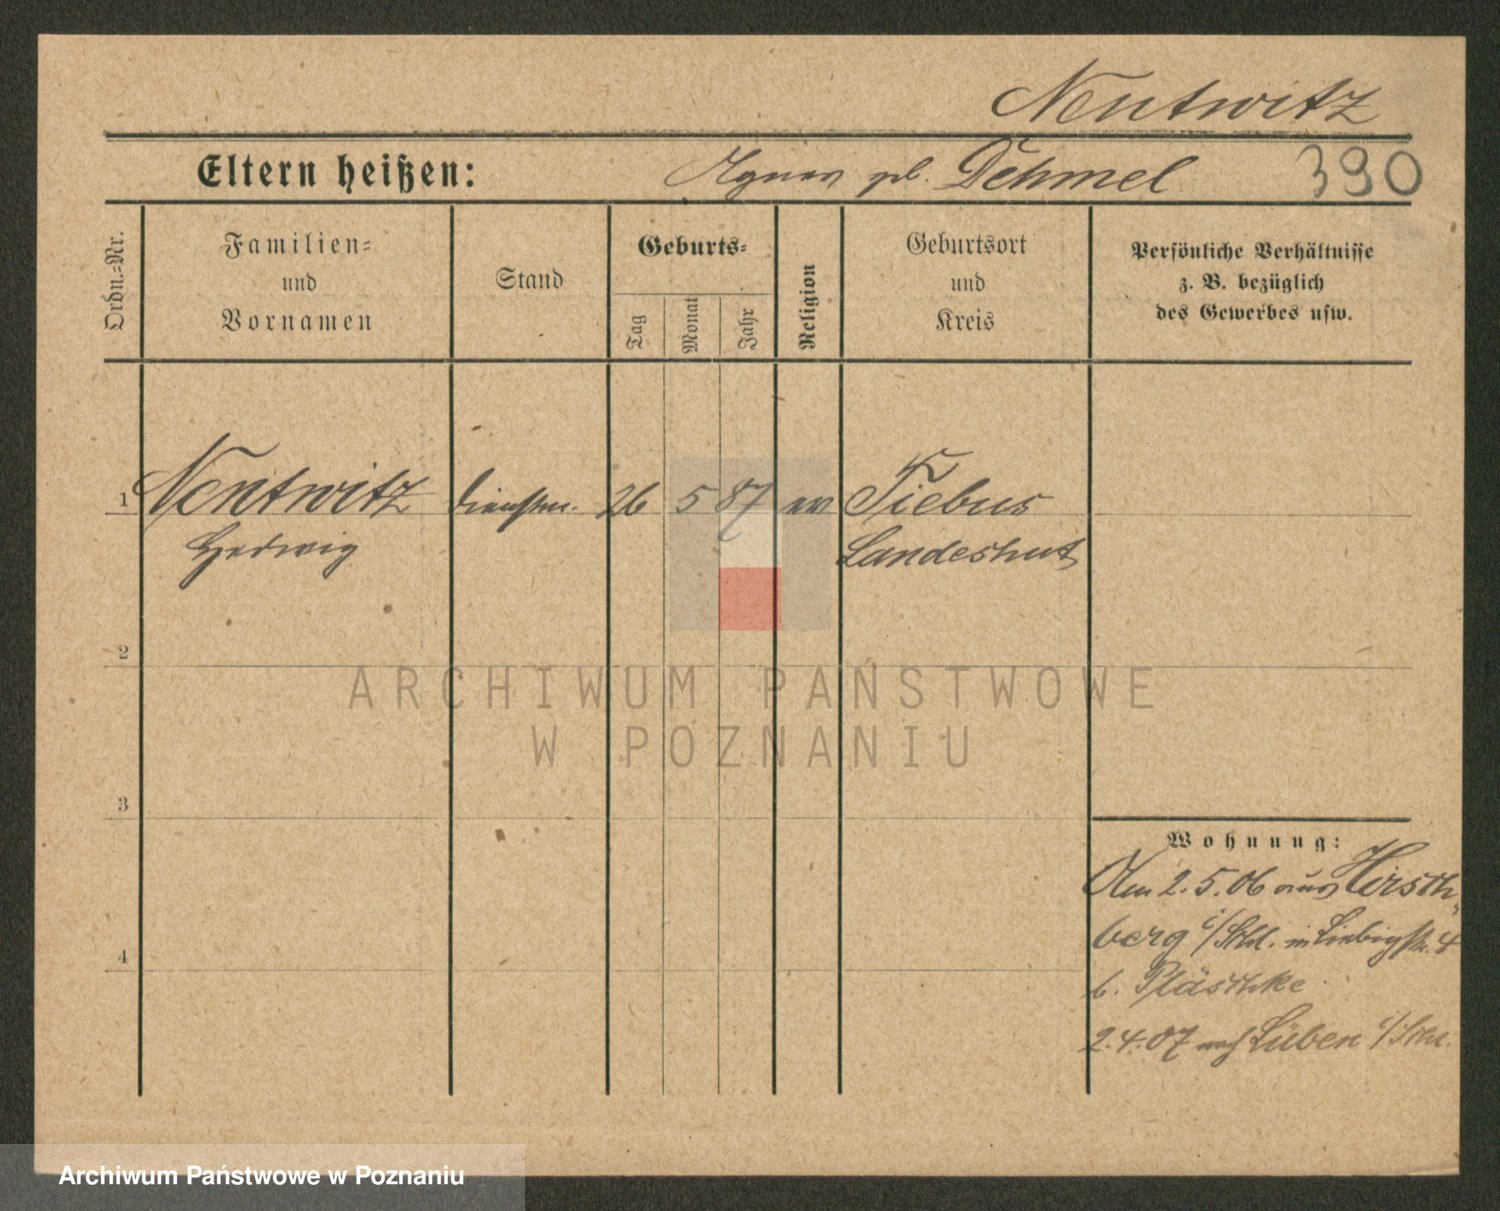 Nentwitz
Eltern heißen: Agnes geb. Dehmel 390
Ordn.-Nr.
Familien-
und
Vornamen
Stand
Geburts-
Tag
Monat
Jahr
Religion
Geburtsort
und
Kreis
Persönliche Verhältnisse
z. B. bezüglich
des Gewerbes usw.
1 Nentwitz Dienstm. 26 5 87 ev Tiebus
Hedwig Landeshut
2
3
4
Wohnung:
Am 2.5.06 aus Hirsch-
berg i/Schl. in Liebigstr. 4
b. Pläschke
2.4.07 nach Lüben i/Schl.
ARCHIWUM PAŃSTWOWE
W POZNANIU
Archiwum Państwowe w Poznaniu